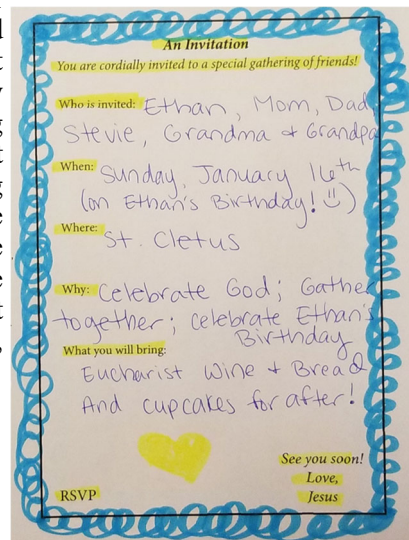 An Invitation
You are cordially invited to a special gathering of friends!
Who is invited: Ethan, Mom, Dad
Stevie, Grandma & Grandpa
When: Sunday, January 16th
(on Ethan's Birthday! :))
Where: St. Cletus
Why: Celebrate God; Gather
together; celebrate Ethan's
Birthday
What you will bring:
Eucharist Wine & Bread
And cupcakes for after!
See you soon!
Love,
RSVP Jesus